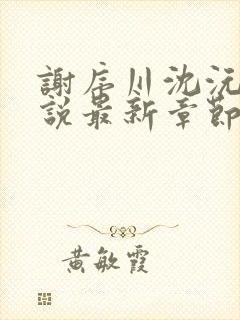 謝辰川沈沅
說最新章節
黃敏霞